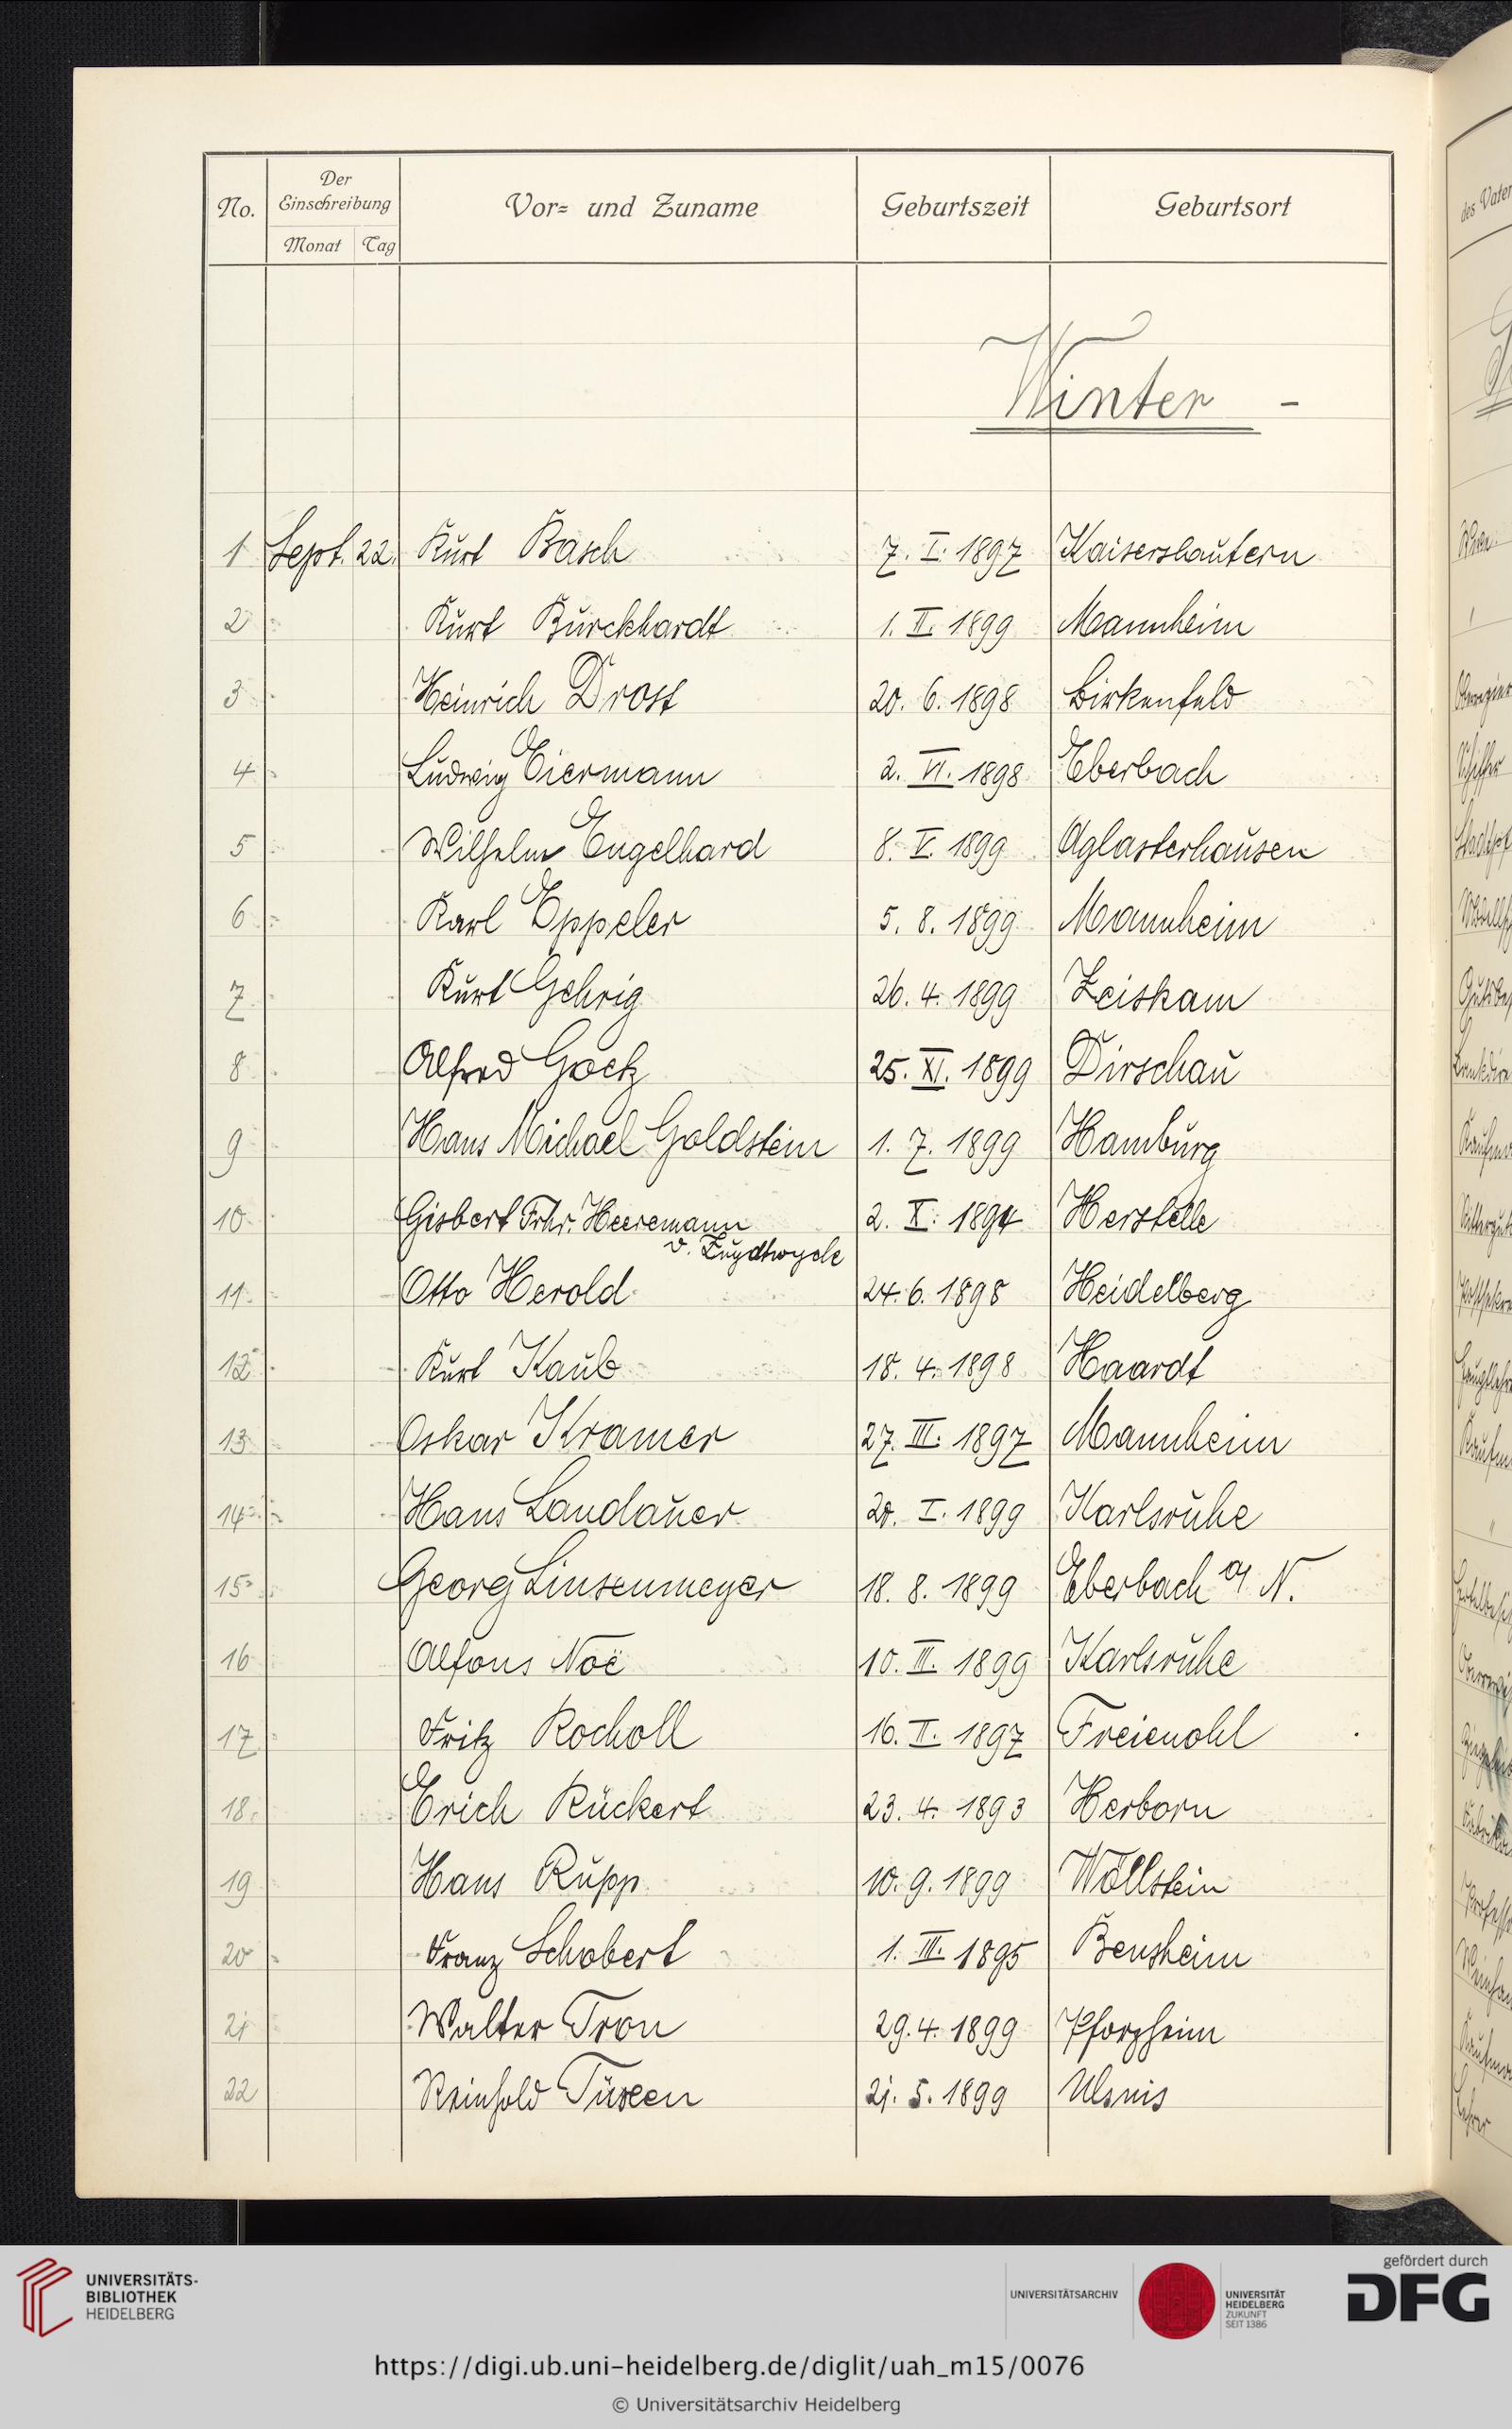 No.
Der Einschreibung
Monat Tag
Vor= und Zuname
Geburtszeit
Geburtsort
des Vater
Winter -
1 Sept. 22. Kurt Basch 7. I. 1897 Kaiserslautern
2 Kurt Burckhardt 1. II. 1899 Mannheim
3 Heinrich Drost 20. 6. 1898 Birkenfeld
4 Ludwig Eiermann 2. VI. 1898 Eberbach
5 Wilhelm Engelhard 8. V. 1899 Aglasterhausen
6 Karl Eppeler 5. 8. 1899 Mannheim
7 Kurt Gehrig 26. 4. 1899 Zeiskam
8 Alfred Goetz 25. XI. 1899 Dirschau
9 Hans Michael Goldstein 1. 7. 1899 Hamburg
10 Gisbert Frhr. Heeremann 2. X. 1894 Herstelle
v. Zuydtwyck
11. Otto Herold 24. 6. 1898 Heidelberg
12 Kurt Kaub 18. 4. 1898 Haardt
13 Oskar Kramer 27. III. 1897 Mannheim
14 Hans Landauer 20. I. 1899 Karlsruhe
15 Georg Linsenmeyer 18. 8. 1899 Eberbach a/ N.
16 Alfons Noë 10. III. 1899 Karlsruhe
17 Fritz Rocholl 16. II. 1897 Freienohl
18. Erich Rückert 23. 4. 1893 Herborn
19 Hans Rupp 10. 9. 1899 Wöllstein
20 Franz Schobert 1. III. 1895 Bensheim
21 Walter Tron 29. 4. 1899 Pforzheim
22 Reinhold Tüxen 21. 5. 1899 Ulsnis
UNIVERSITÄTS-
BIBLIOTHEK
HEIDELBERG
UNIVERSITÄTSARCHIV
UNIVERSITÄT
HEIDELBERG
ZUKUNFT
SEIT 1386
gefördert durch
DFG
https://digi.ub.uni-heidelberg.de/diglit/uah_m15/0076
© Universitätsarchiv Heidelberg